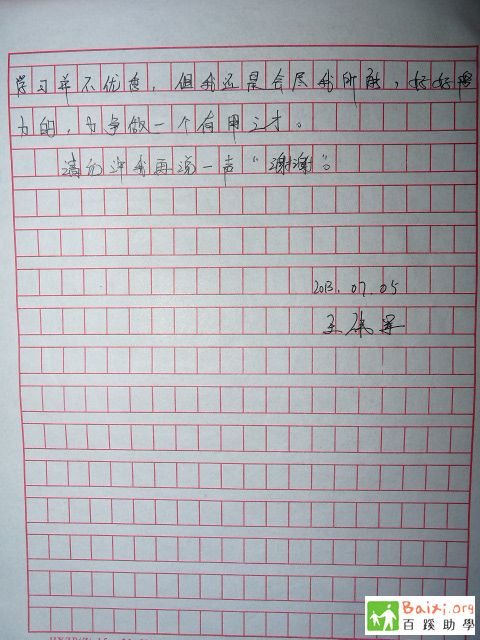 学习并不优秀，但我还是会尽我所能，好好努
力的，力争做一个有用之才。
请允许我再说一声“谢谢”。
2013.07.05
王
Baixi.org
百蹊助學